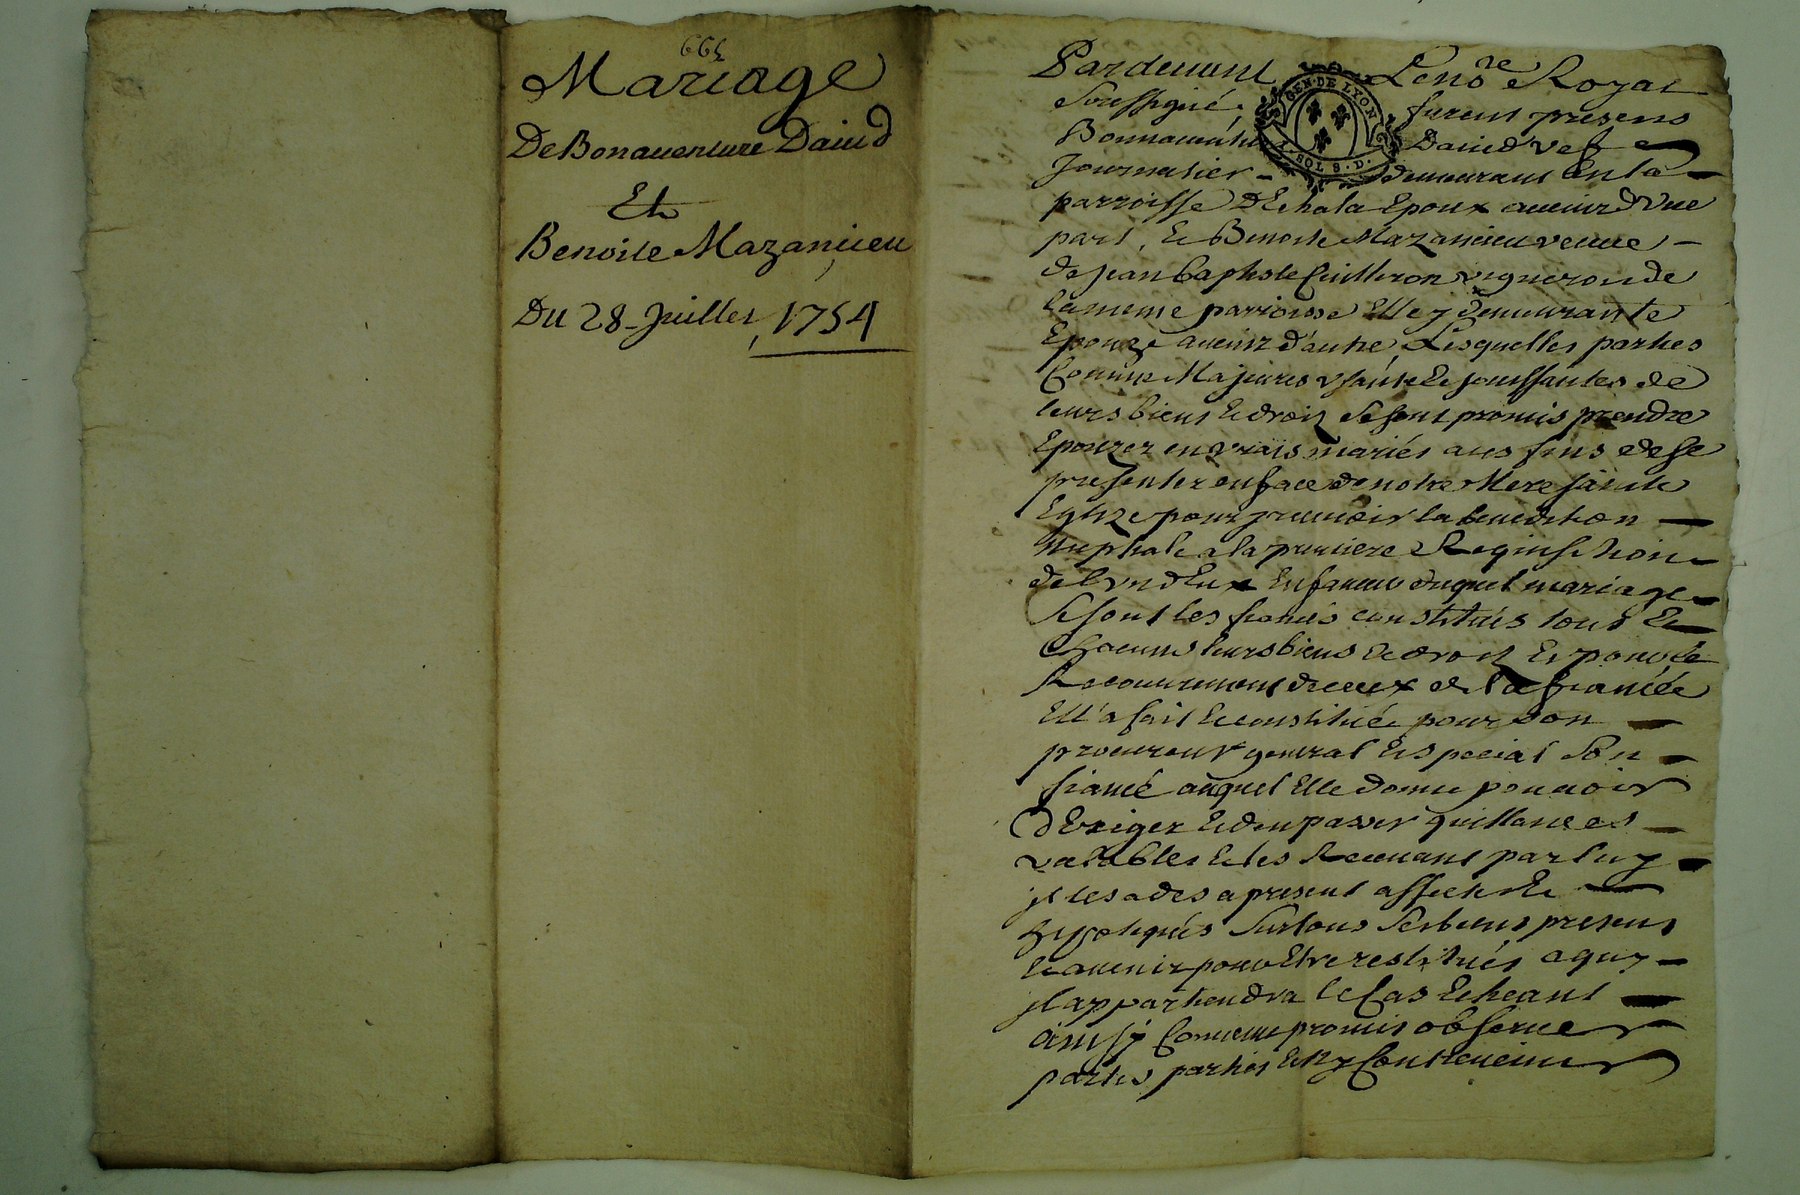 665
Mariage
De Bonauenture Dauid
Et
Benoite Mazanieu
Du 28 Juillet, 1754
Pardeuant Le no.re Royal
Soussigné, furent presens
Bonnauenture Dauid vef
Journalier demeurant En la
parroisse D'Echala Epoux auenir d'Vne
part, Et Benoite Mazanieu veuue
de jean baptiste Cuilleron vigneron de
la meme parroisse Elle y demeurante
Epouze auenir d'autre, Lesquelles parties
Comme Majeures vsante Et jouissantes de
leurs biens Et droits Se sont promis prendre
Epouzer en vrais mariés aux fins de se
presenter en face de notre Mere sainte
Eglize pour receuoir la benediction
Nuptiale a la premiere Requisition
de l'vn d'Eux En faueur duquel mariage
Se sont les fiancés constitués tous Et
Chacuns leurs biens Et droits Et pour le
Recouurement de ceux de la fiancée
Ell'a fait Et constitué pour son
procureur general Especial Son
fiancé auquel Elle donne pouuoir
d'Exiger Et d'en passer quittances
valables Et les Receuant par luy
jl les a des a present affecté Et
hypotequés Sur tous Ses biens presens
Et auenir pour Etre restitués a quy
jl appartiendra le Cas Echeant
ainsy Conuenu promis obseruer
par les parties Et n'y Contreuenir
GEN. DE LYON
SOLS. D.